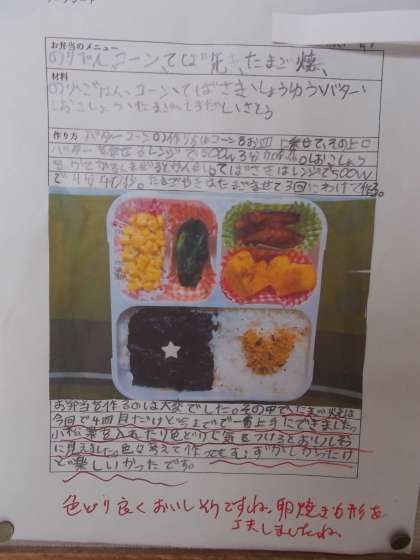 お弁当のメニュー
のりべん、コーン、てば先、たまご焼、
材料
のり、ごはん、コーン、てばさき、しょうゆう、バター、
しおこしょう、たまご、さとう
作り方 バターコーンの作り方はコーンをお皿に乗せて、その上に
バターを乗せレンジで500W3分
てばさきはレンジで500W
で4分
たまごやきはたまごをまぜて3回にわけて作る。
お弁当を作るのは大変でした。その中でたまご焼は
今回で4回目だけど今までで一番上手にできました。
小松菜を入れたり色どりに気をつけるとおいしそう
に見えました。色々考えて作ってもむずかしかったけ
ど楽しいかったです。
色どり良くおいしそうですね。卵焼きも形を
工夫しましたね。